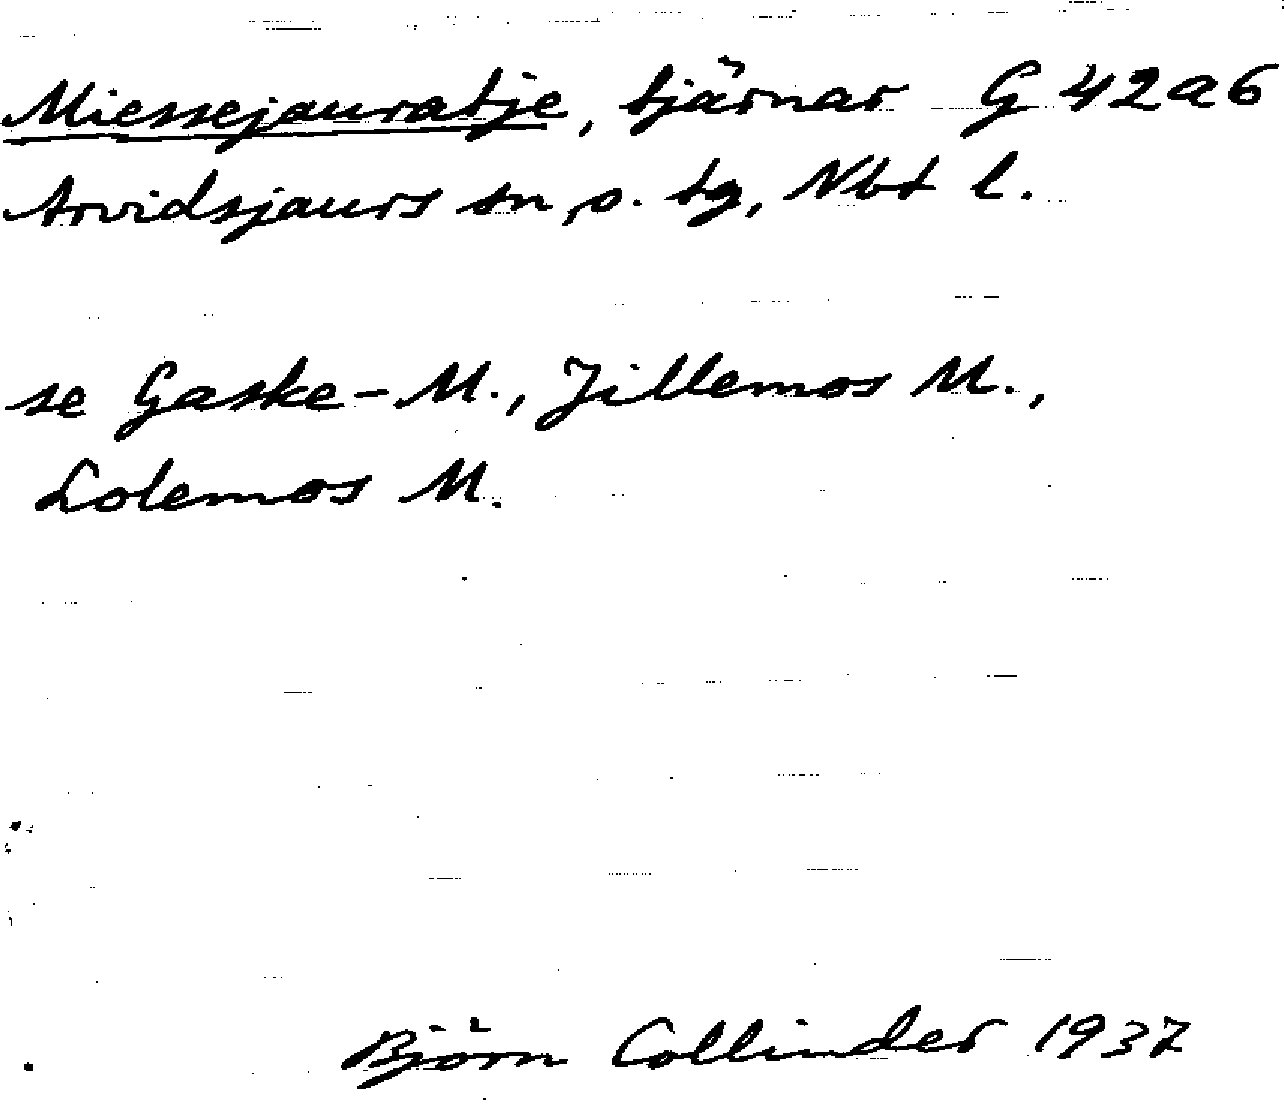 Miessejauratje, tjärnar G 42a6
Arvidsjaurs sn o. tg, Nbt l.
se Gaske-M., Jillemos M.,
Lolemos M.
Björn Collinder 1937